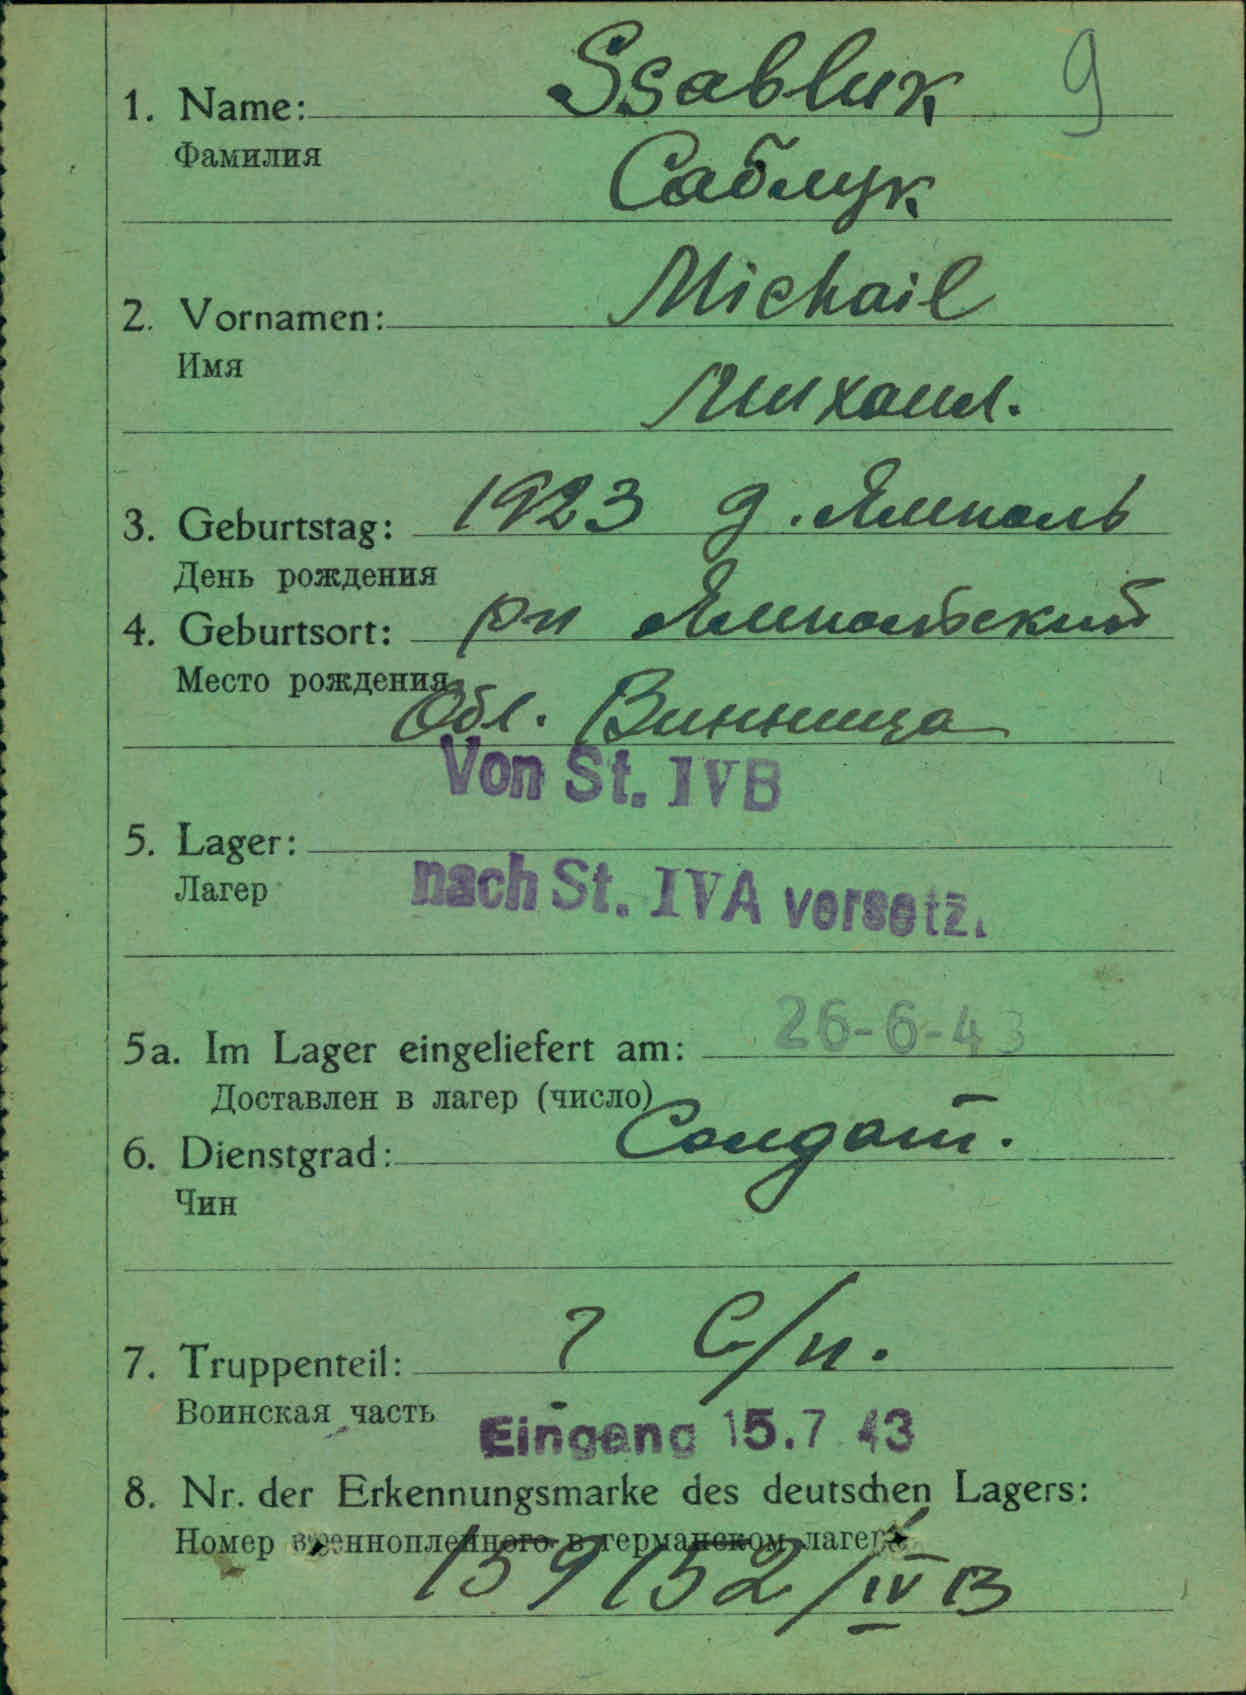 1. Name: Ssabluk 9
Фамилия Саблук
2. Vornamen: Michail
Имя
Михаил.
3. Geburtstag: 1923 д. Ямполь
День рождения
4. Geburtsort: рн Ямпольский
Место рождения
Обл. Винница
Von St. IVB
5. Lager:
Лагер
nach St. IVA versetz.
26-6-43
5a. Im Lager eingeliefert am:
Доставлен в лагер (число)
6. Dienstgrad: Солдат.
Чин
7. Truppenteil: ? С/п.
Воинская часть
Eingang 15.7.43
8. Nr. der Erkennungsmarke des deutschen Lagers:
Номер военнопленного в германском лагере
159152/IV B